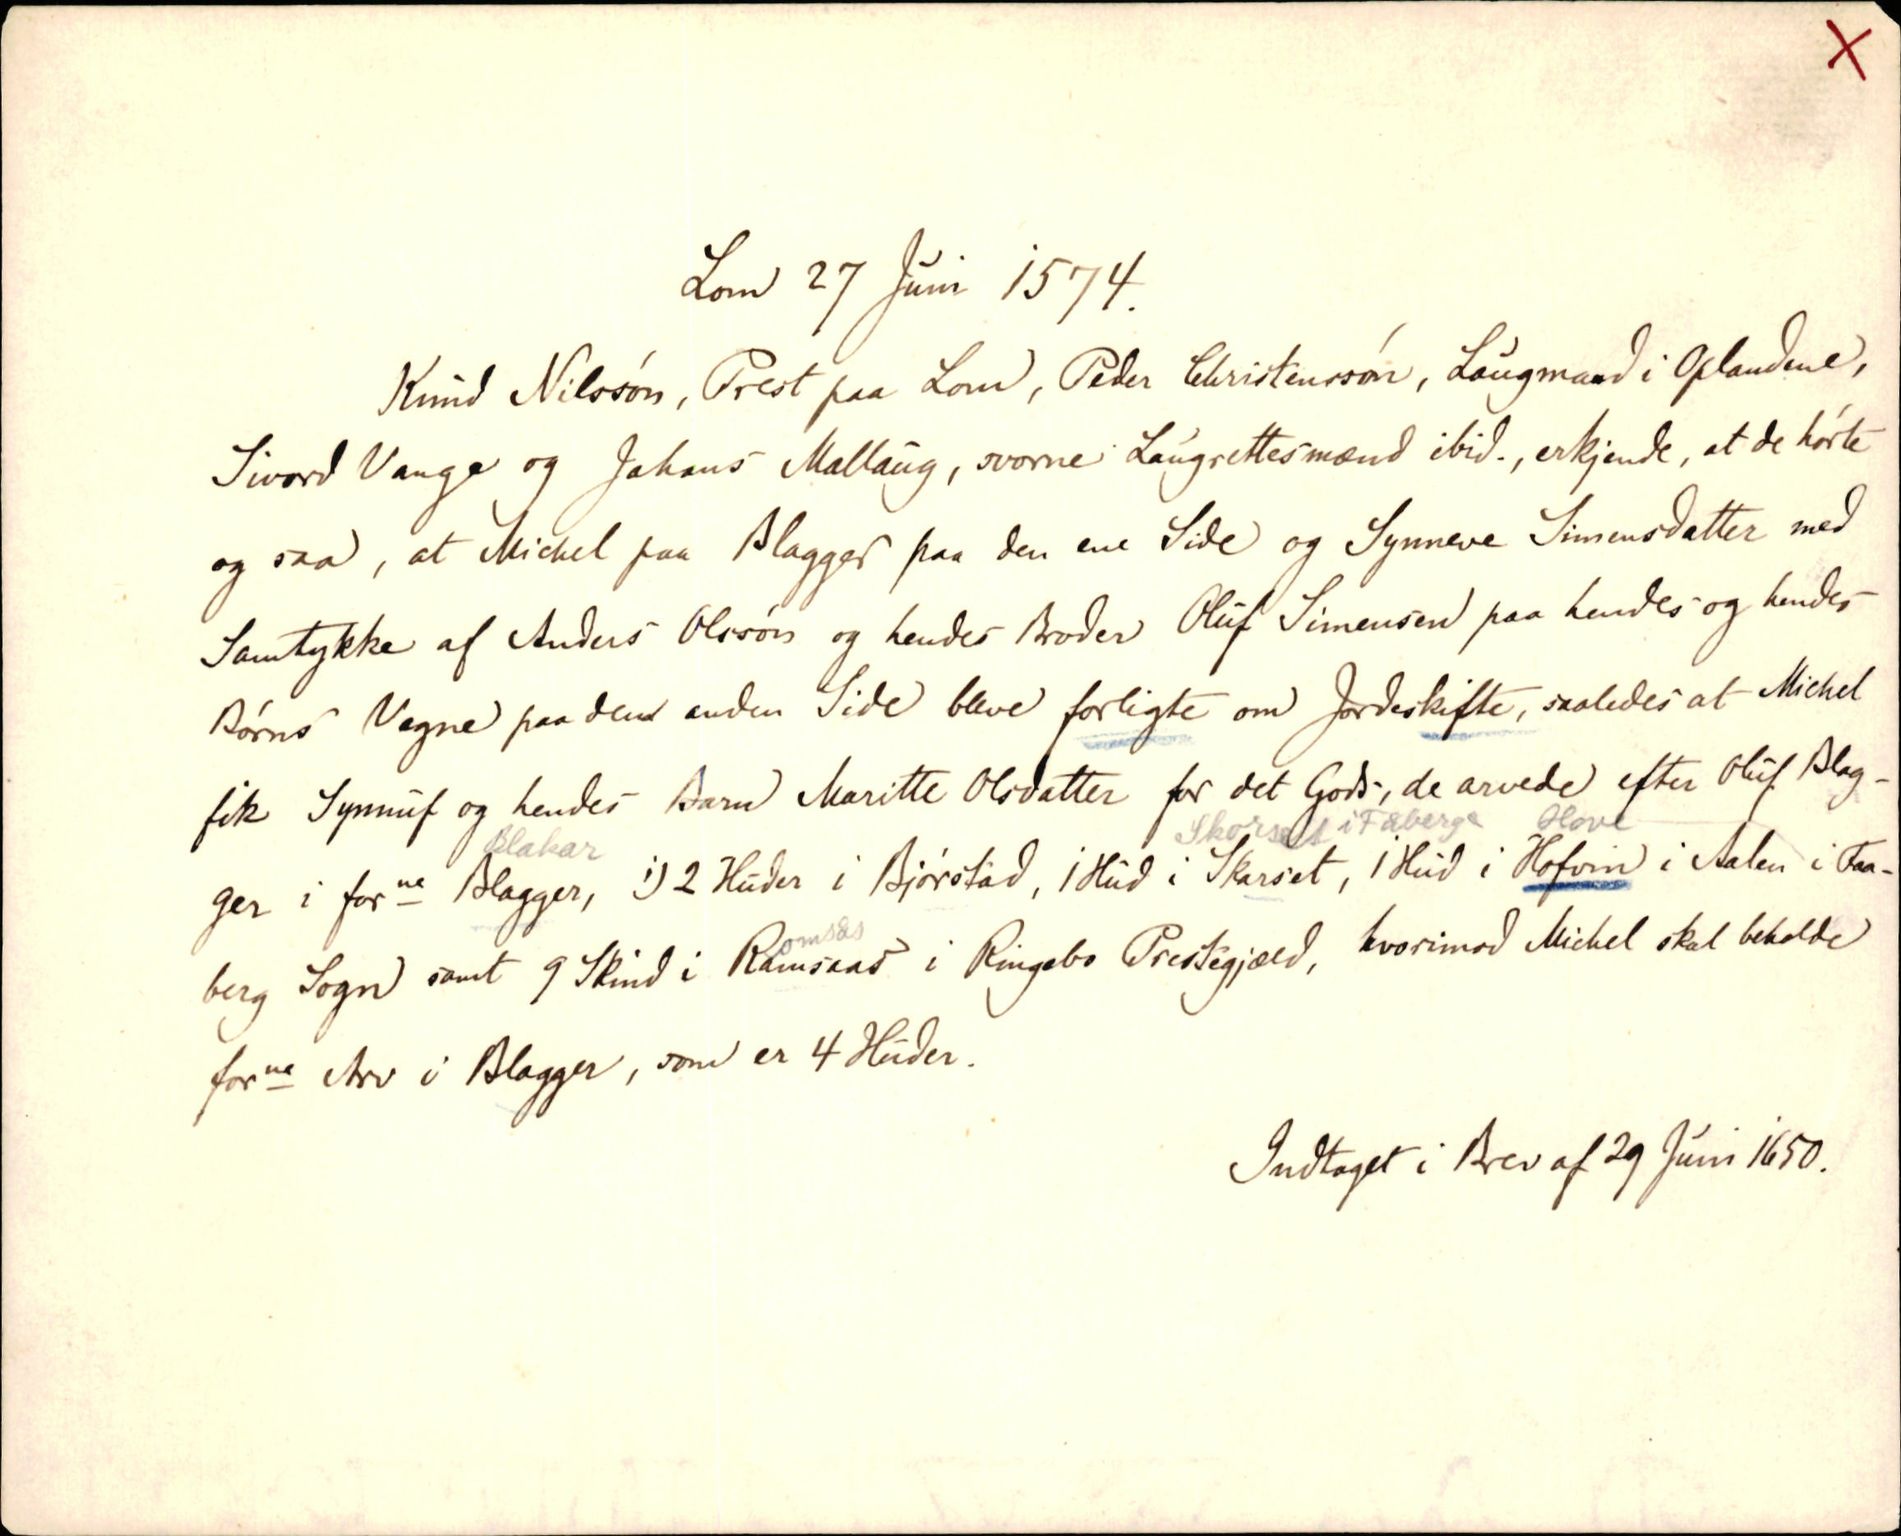 X
Lom 27 Juni 1574.
Knud Nilssön, Prest paa Lom, Peder Christenssön, Laugmand i Oplandene,
Sivord Vange og Johans Mallaug, svorne Laugrettesmænd ibid., erkjende, at de hörte
og saa, at Michel paa Blagger paa den ene Side og Synneve Simensdatter med
Samtykke af Anders Olssön og hendes Broder Oluf Simensen paa hendes og hendes
Börns Vegne paa den anden Side bleve forligte om Jordeskifte, saaledes at Michel
fik Synnuf og hendes Barn Maritte Olsdatter for det Gods, de arvede efter Oluf Blag-
Blakar Skorset i Faaberge Hove
ger i forne Blagger, i) 2 Huder i Bjórstad, 1 Hud i Skarset, 1 Hud i Hofvin i Aalen i Faa-
omsaas
berg Sogn samt 9 Skind i Ramsaas i Ringebo Prestegjæld, hvorimod Michel skal beholde
forne Arv i Blagger, som er 4 Huder.
Indtaget i Brev af 29 Juni 1650.